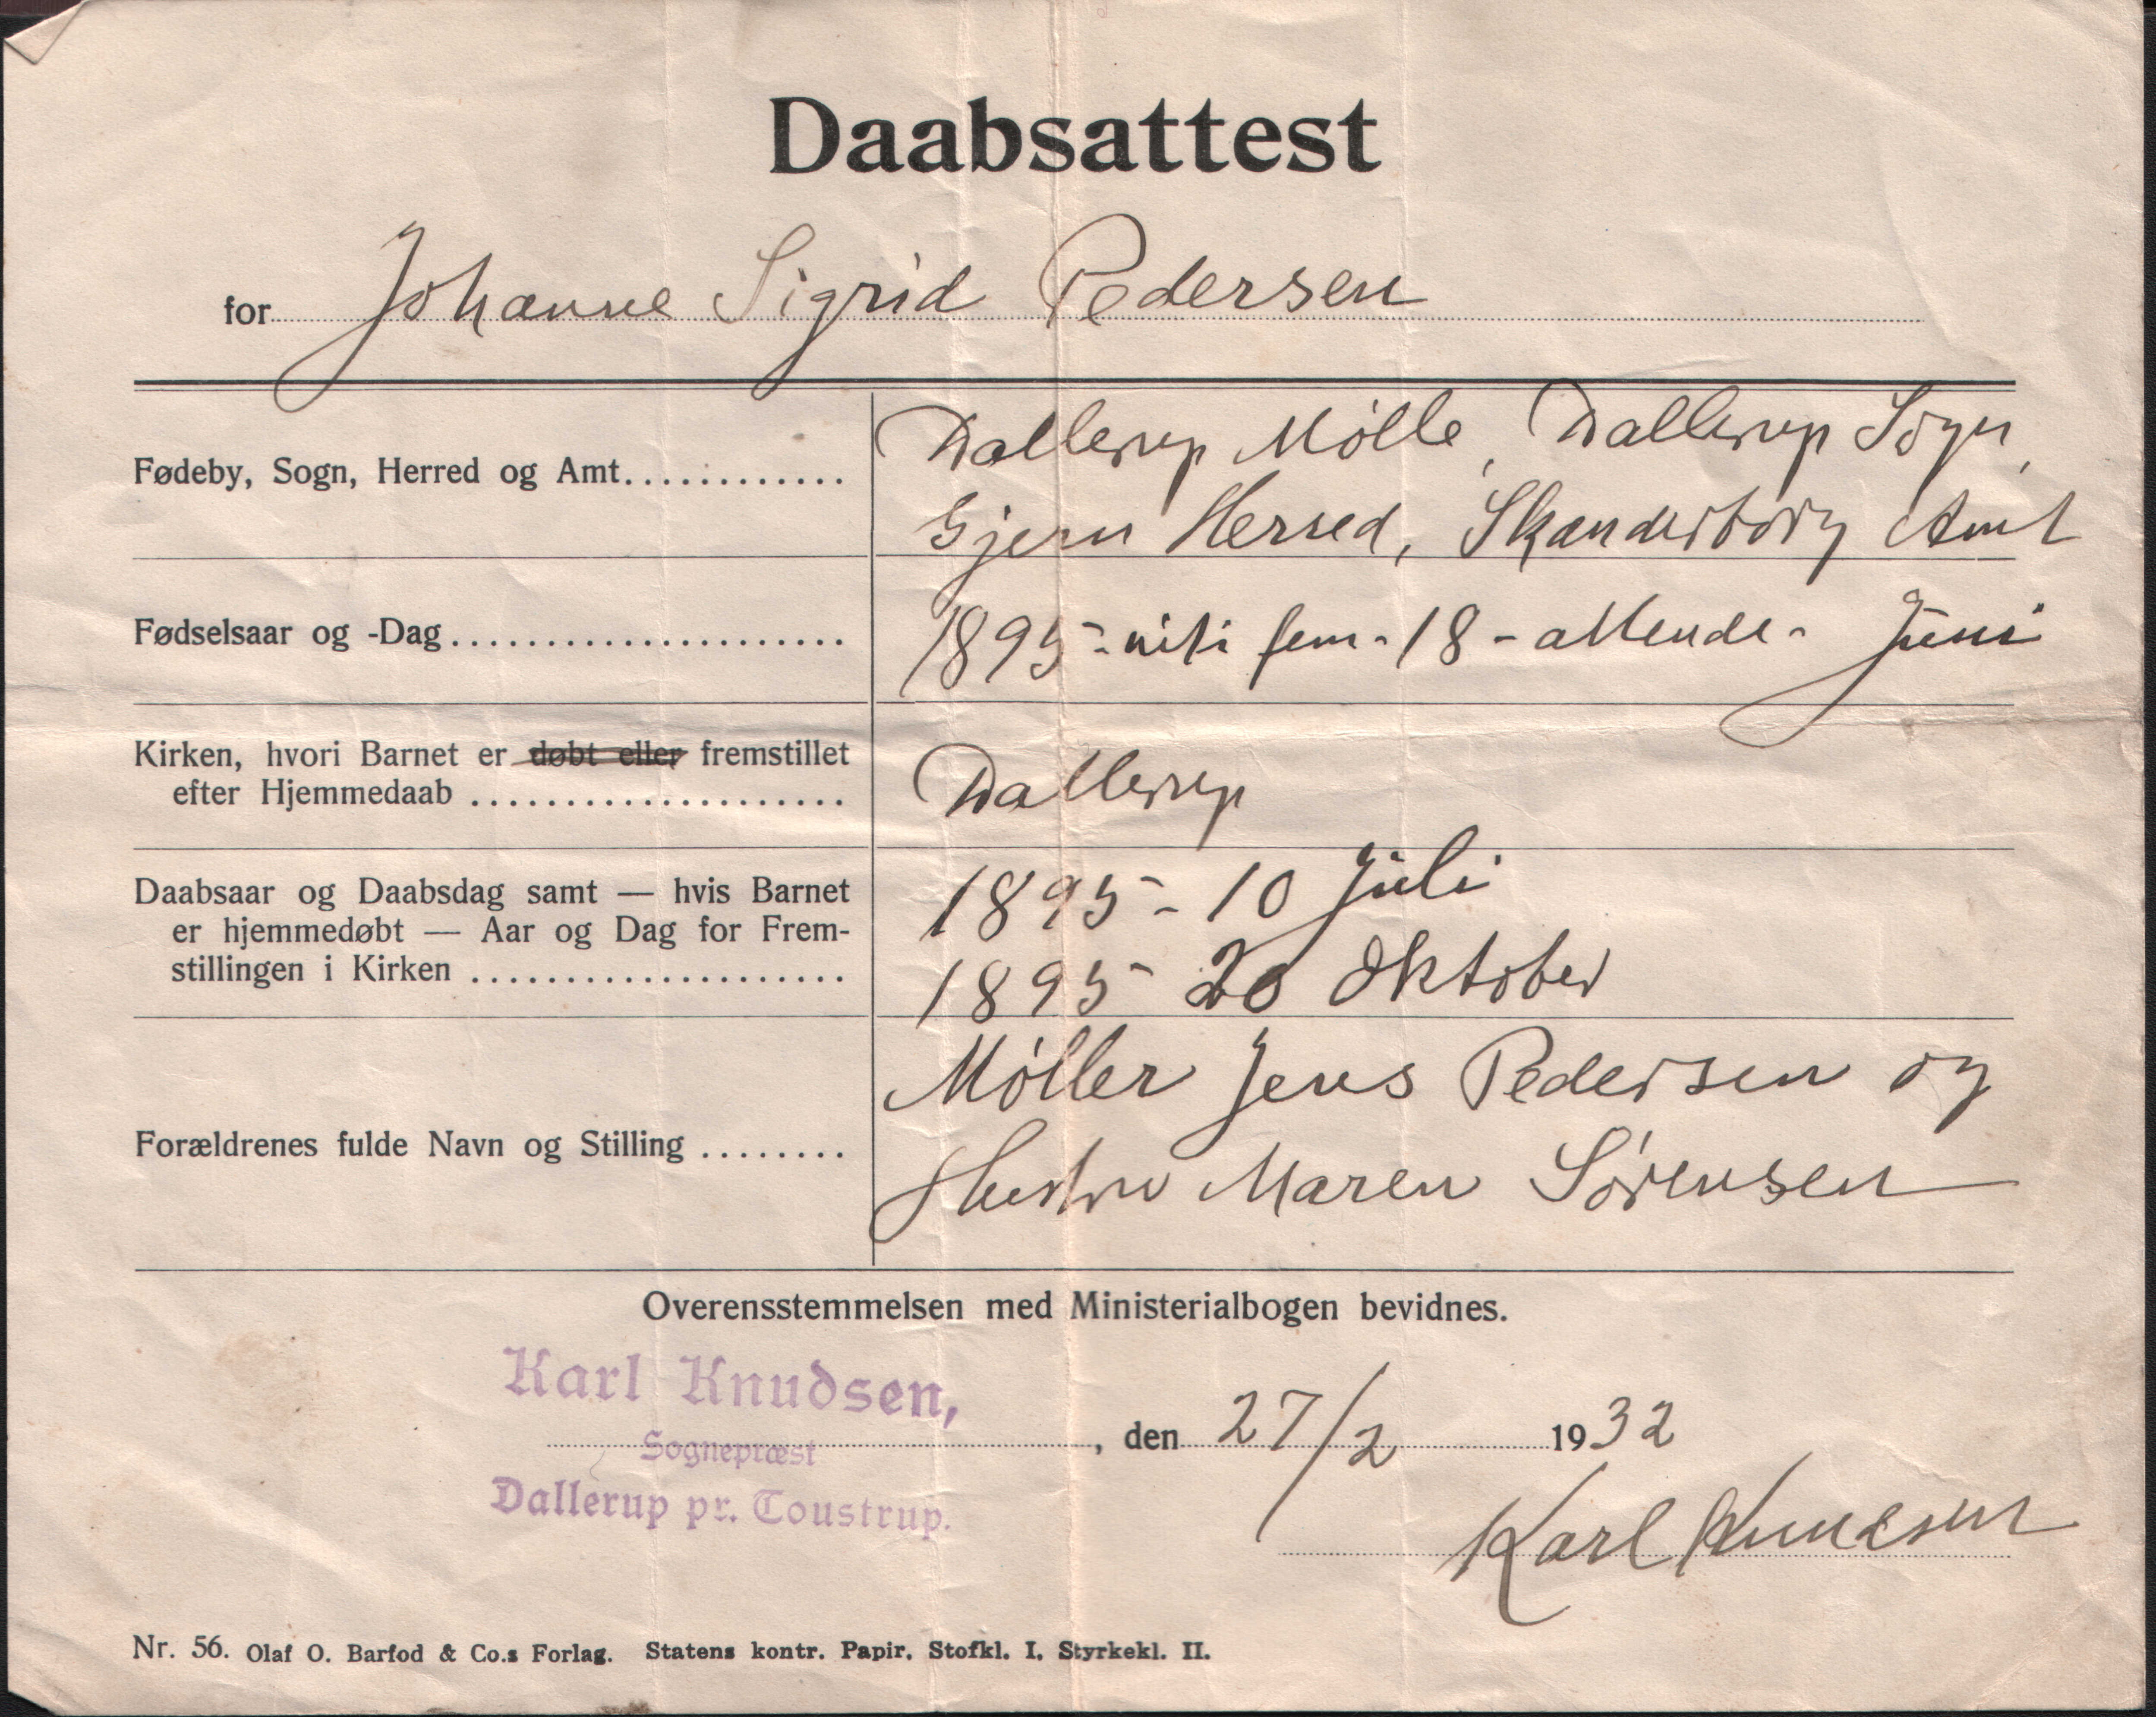 Daabsattest
for Johanne Sigrid Pedersen
Fødeby, Sogn, Herred og Amt
Dallerup Mølle, Dallerup Sogn,
Gjern Herred, Skanderborg Amt
Fødselsaar og -Dag
1895 - niti fem - 18 - attende - Juni
Kirken, hvori Barnet er døbt eller fremstillet
efter Hjemmedaab
Dallerup
Daabsaar og Daabsdag samt — hvis Barnet
er hjemmedøbt — Aar og Dag for Frem-
stillingen i Kirken
1895 - 10 Juli
1895 - 20 Oktober
Forældrenes fulde Navn og Stilling
Møller Jens Pedersen og
Hustru Maren Sørensen
Overensstemmelsen med Ministerialbogen bevidnes.
Karl Knudsen,
Sognepræst
Dallerup pr. Toustrup.
, den 27/2 1932
Karl Knudsen
Nr. 56. Olaf O. Barfod & Co.s Forlag. Statens kontr. Papir. Stofkl. I. Styrkekl. II.